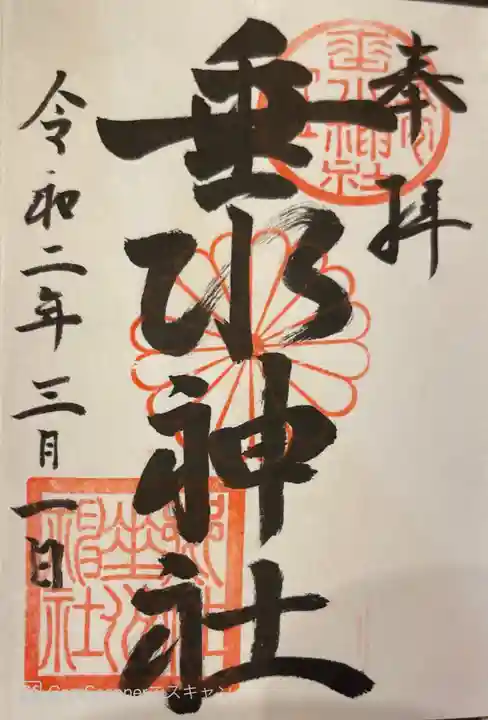 奉拜
垂水神社
令和二年三月一日
CamScannerでスキャン